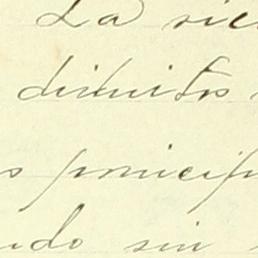 La sie
distritos
s princip
ndo sin